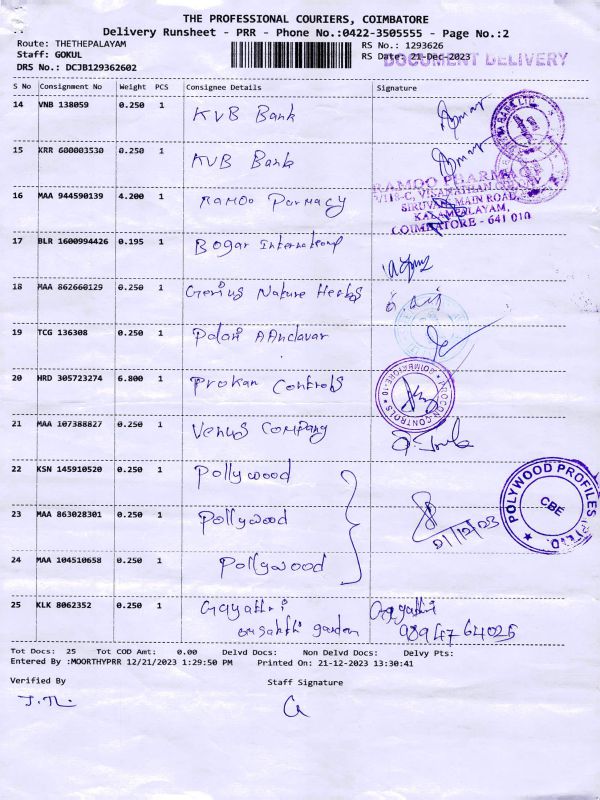 THE PROFESSIONAL COURIERS, COIMBATORE
Delivery Runsheet - PRR - Phone No.:0422-3505555 - Page No.:2
Route: THETHEPALAYAM
Staff: GOKUL
DRS No.: DCJB129362602
RS No.: 1293626
RS Date: 21-Dec-2023
DOCUMENT DELIVERY
S No Consignment No Weight PCS Consignee Details Signature
14 VNB 138059 0.250 1 KVB Bank
15 KRR 600003530 0.250 1 KVB Bank
16 MAA 944590139 4.200 1 Ramoo Parmacy
RAMOO PHARMACY
SIRUVANI MAIN ROAD,
COIMBATORE - 641 010
17 BLR 1600994426 0.195 1 Bogar International
18 MAA 862660129 0.250 1 Genius Nature Herbs
19 TCG 136308 0.250 1 Palani AAndavar
20 HRD 305723274 6.800 1 Prokan Controls
PROCON CONTROLS COIMBATORE-10
21 MAA 107388827 0.250 1 Venus Company
22 KSN 145910520 0.250 1 Pollywood
23 MAA 863028301 0.250 1 Pollywood
24 MAA 104510658 0.250 1 Pollywood
21/12/23
POLYWOOD PROFILES PVT LTD.
CBE
25 KLK 8062352 0.250 1 Gayathri Gayathri
garden 98947 64025
Tot Docs: 25 Tot COD Amt: 0.00 Delvd Docs: Non Delvd Docs: Delvy Pts:
Entered By :MOORTHYPRR 12/21/2023 1:29:50 PM Printed On: 21-12-2023 13:30:41
Verified By Staff Signature